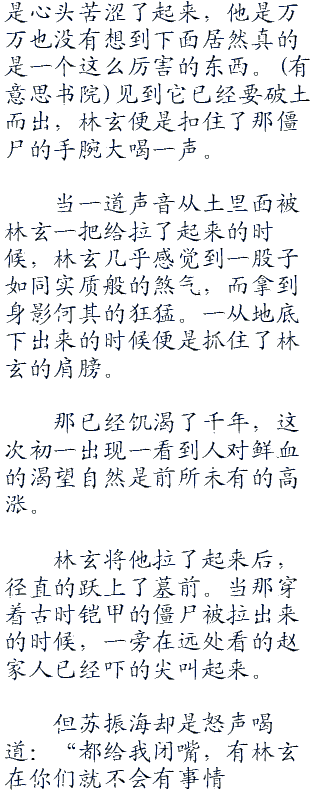 是心头苦涩了起来，他是万
万也没有想到下面居然真的
是一个这么厉害的东西。(有
意思书院)见到它已经要破土
而出，林玄便是扣住了那僵
尸的手腕大喝一声。
当一道声音从土里面被
林玄一把给拉了起来的时
候，林玄几乎感觉到一股子
如同实质般的煞气，而拿到
身影何其的狂猛。一从地底
下出来的时候便是抓住了林
玄的肩膀。
那已经饥渴了千年，这
次初一出现一看到人对鲜血
的渴望自然是前所未有的高
涨。
林玄将他拉了起来后，
径直的跃上了墓前。当那穿
着古时铠甲的僵尸被拉出来
的时候，一旁在远处看的赵
家人已经吓的尖叫起来。
但苏振海却是怒声喝
道：“都给我闭嘴，有林玄
在你们就不会有事情